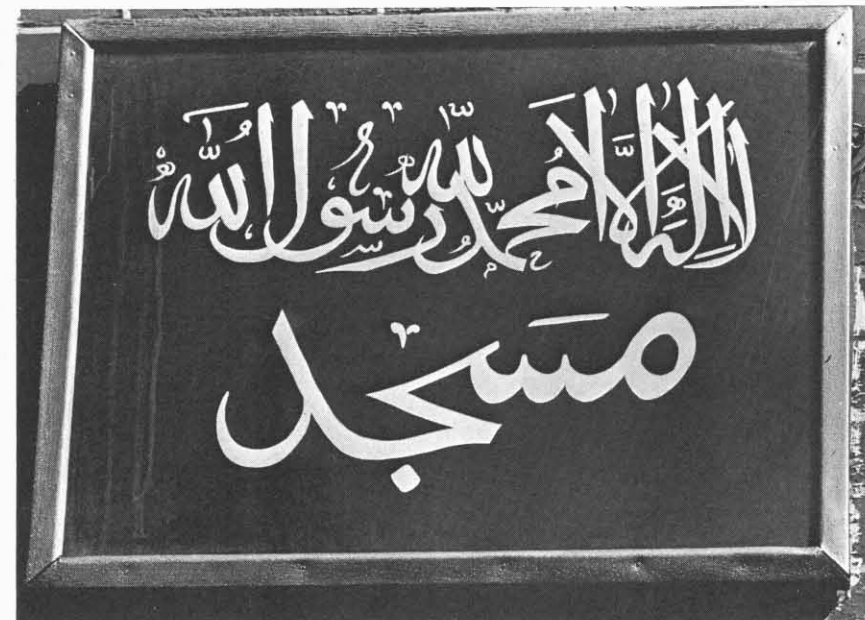 لا إله إلا الله محمد رسول الله
مسجد